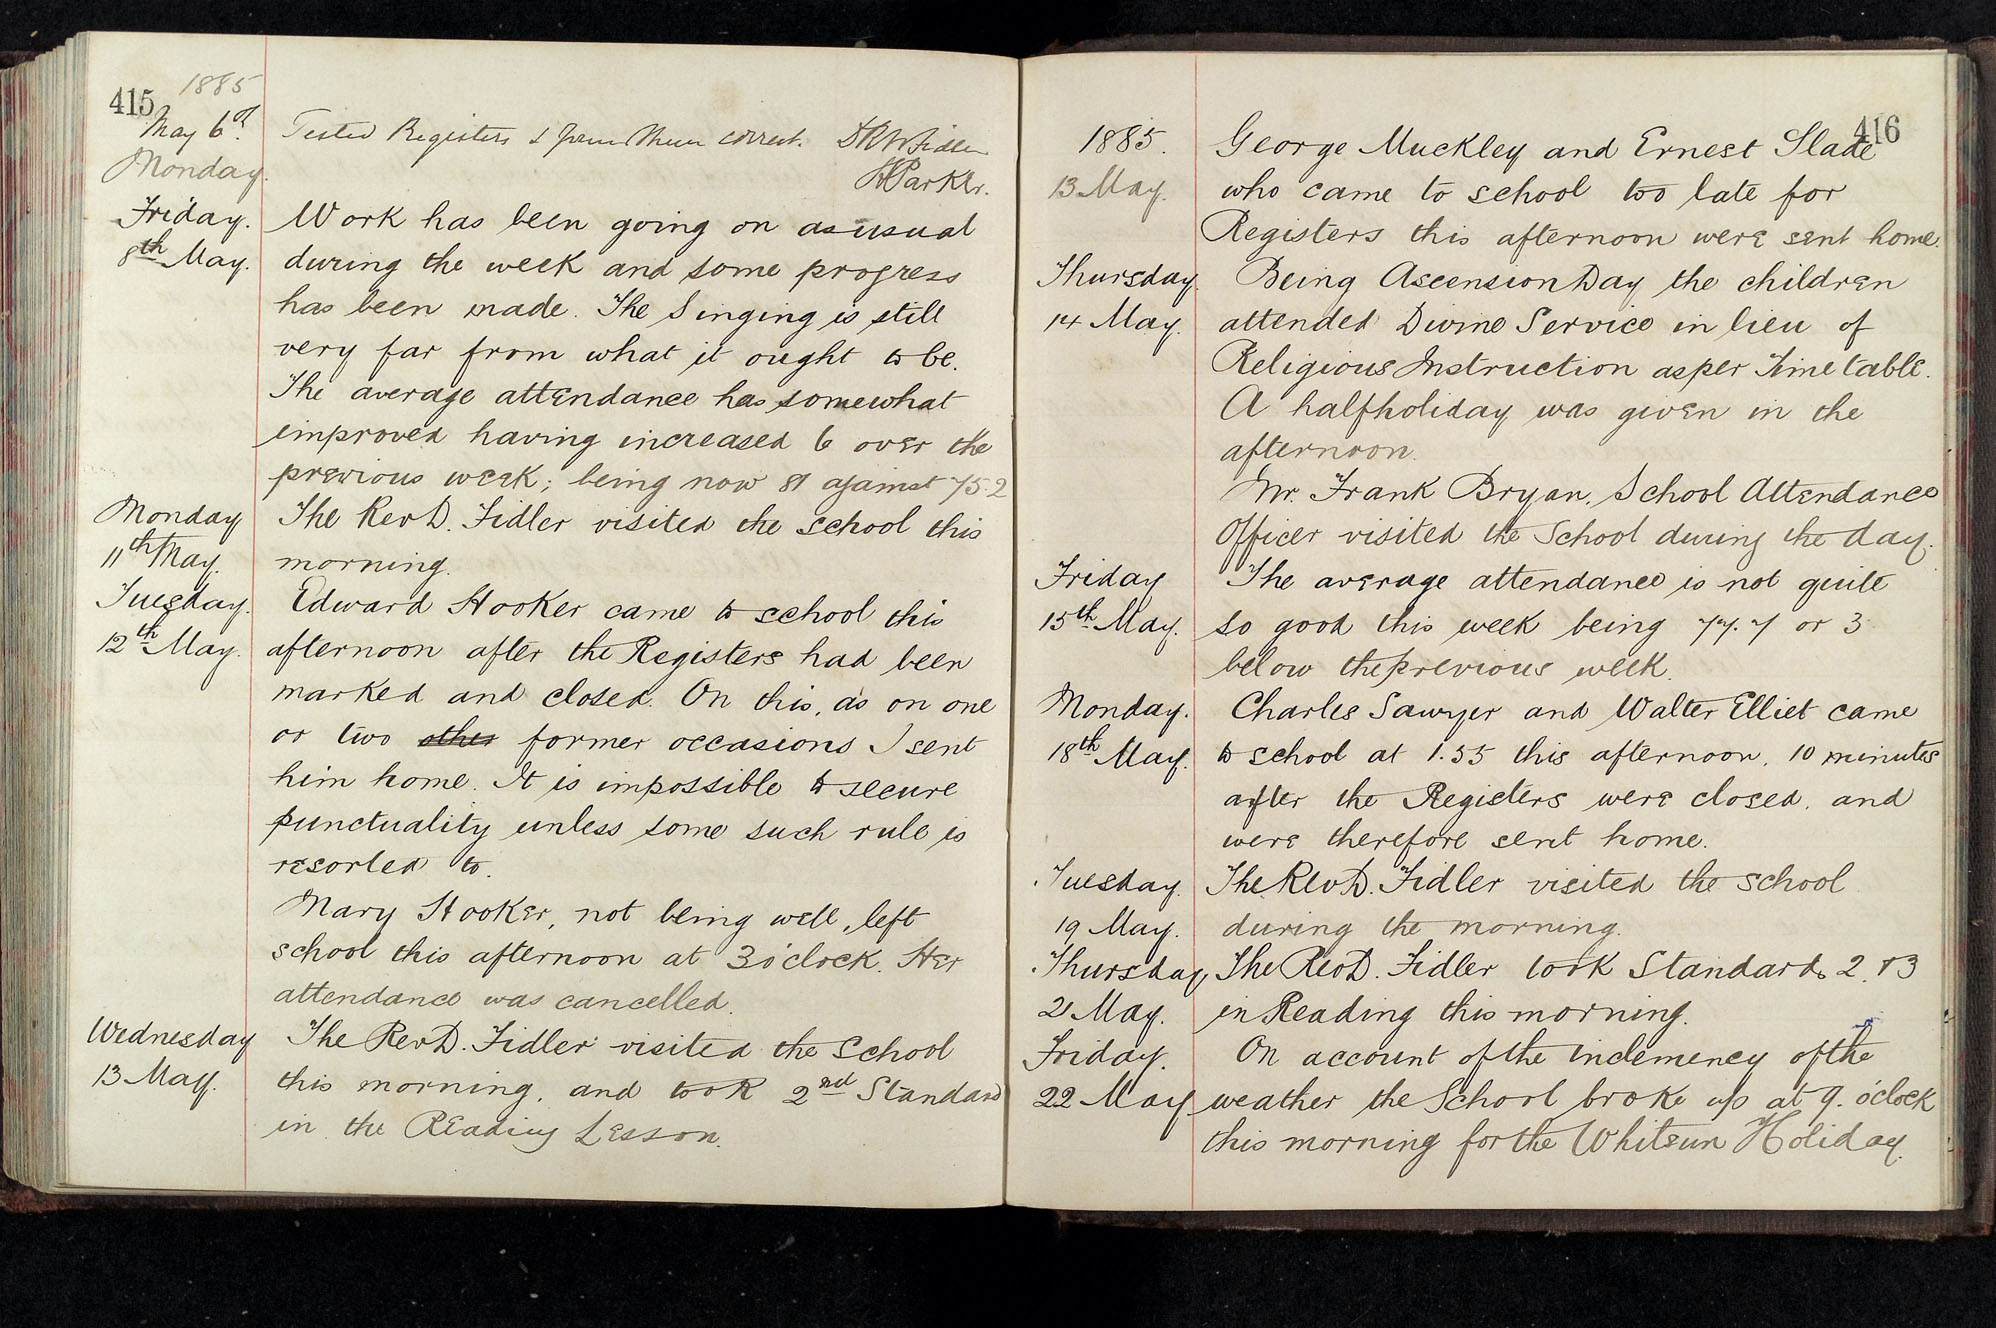 415 1885
May 6th Tested Registers & found them correct. D R W Fidler
Monday. H Parker.
Friday. Work has been going on as usual
8th May. during the week and some progress
has been made. The Singing is still
very far from what it ought to be.
The average attendance has somewhat
improved having increased 6 over the
previous week; being now 81 against 75.2
Monday The Rev D. Fidler visited the school this
11th May. morning.
Tuesday. Edward Hooker came to school this
12th May. afternoon after the Registers had been
marked and closed. On this, as on one
or two other former occasions I sent
him home. It is impossible to secure
punctuality unless some such rule is
resorted to.
Mary Hooker, not being well, left
school this afternoon at 3 o'clock. Her
attendance was cancelled.
Wednesday The Rev D. Fidler visited the School
13 May. this morning, and took 2nd Standard
in the Reading Lesson.
416
1885. George Muckley and Ernest Slade
13 May. who came to school too late for
Registers this afternoon were sent home.
Thursday Being Ascension Day the children
14 May. attended Divine Service in lieu of
Religious Instruction as per Time table.
A half holiday was given in the
afternoon.
Mr. Frank Bryan, School Attendance
Officer visited the School during the day.
Friday The average attendance is not quite
15th May. so good this week being 77.7 or 3
below the previous week.
Monday. Charles Sawyer and Walter Elliet came
18th May. to school at 1.55 this afternoon, 10 minutes
after the Registers were closed, and
were therefore sent home.
Tuesday. The Rev D. Fidler visited the school
19 May. during the morning.
Thursday, The Rev D. Fidler took Standards 2 & 3
21 May. in Reading this morning.
Friday. On account of the inclemency of the
22 May weather the School broke up at 9. o'clock
this morning for the Whitsun Holiday.